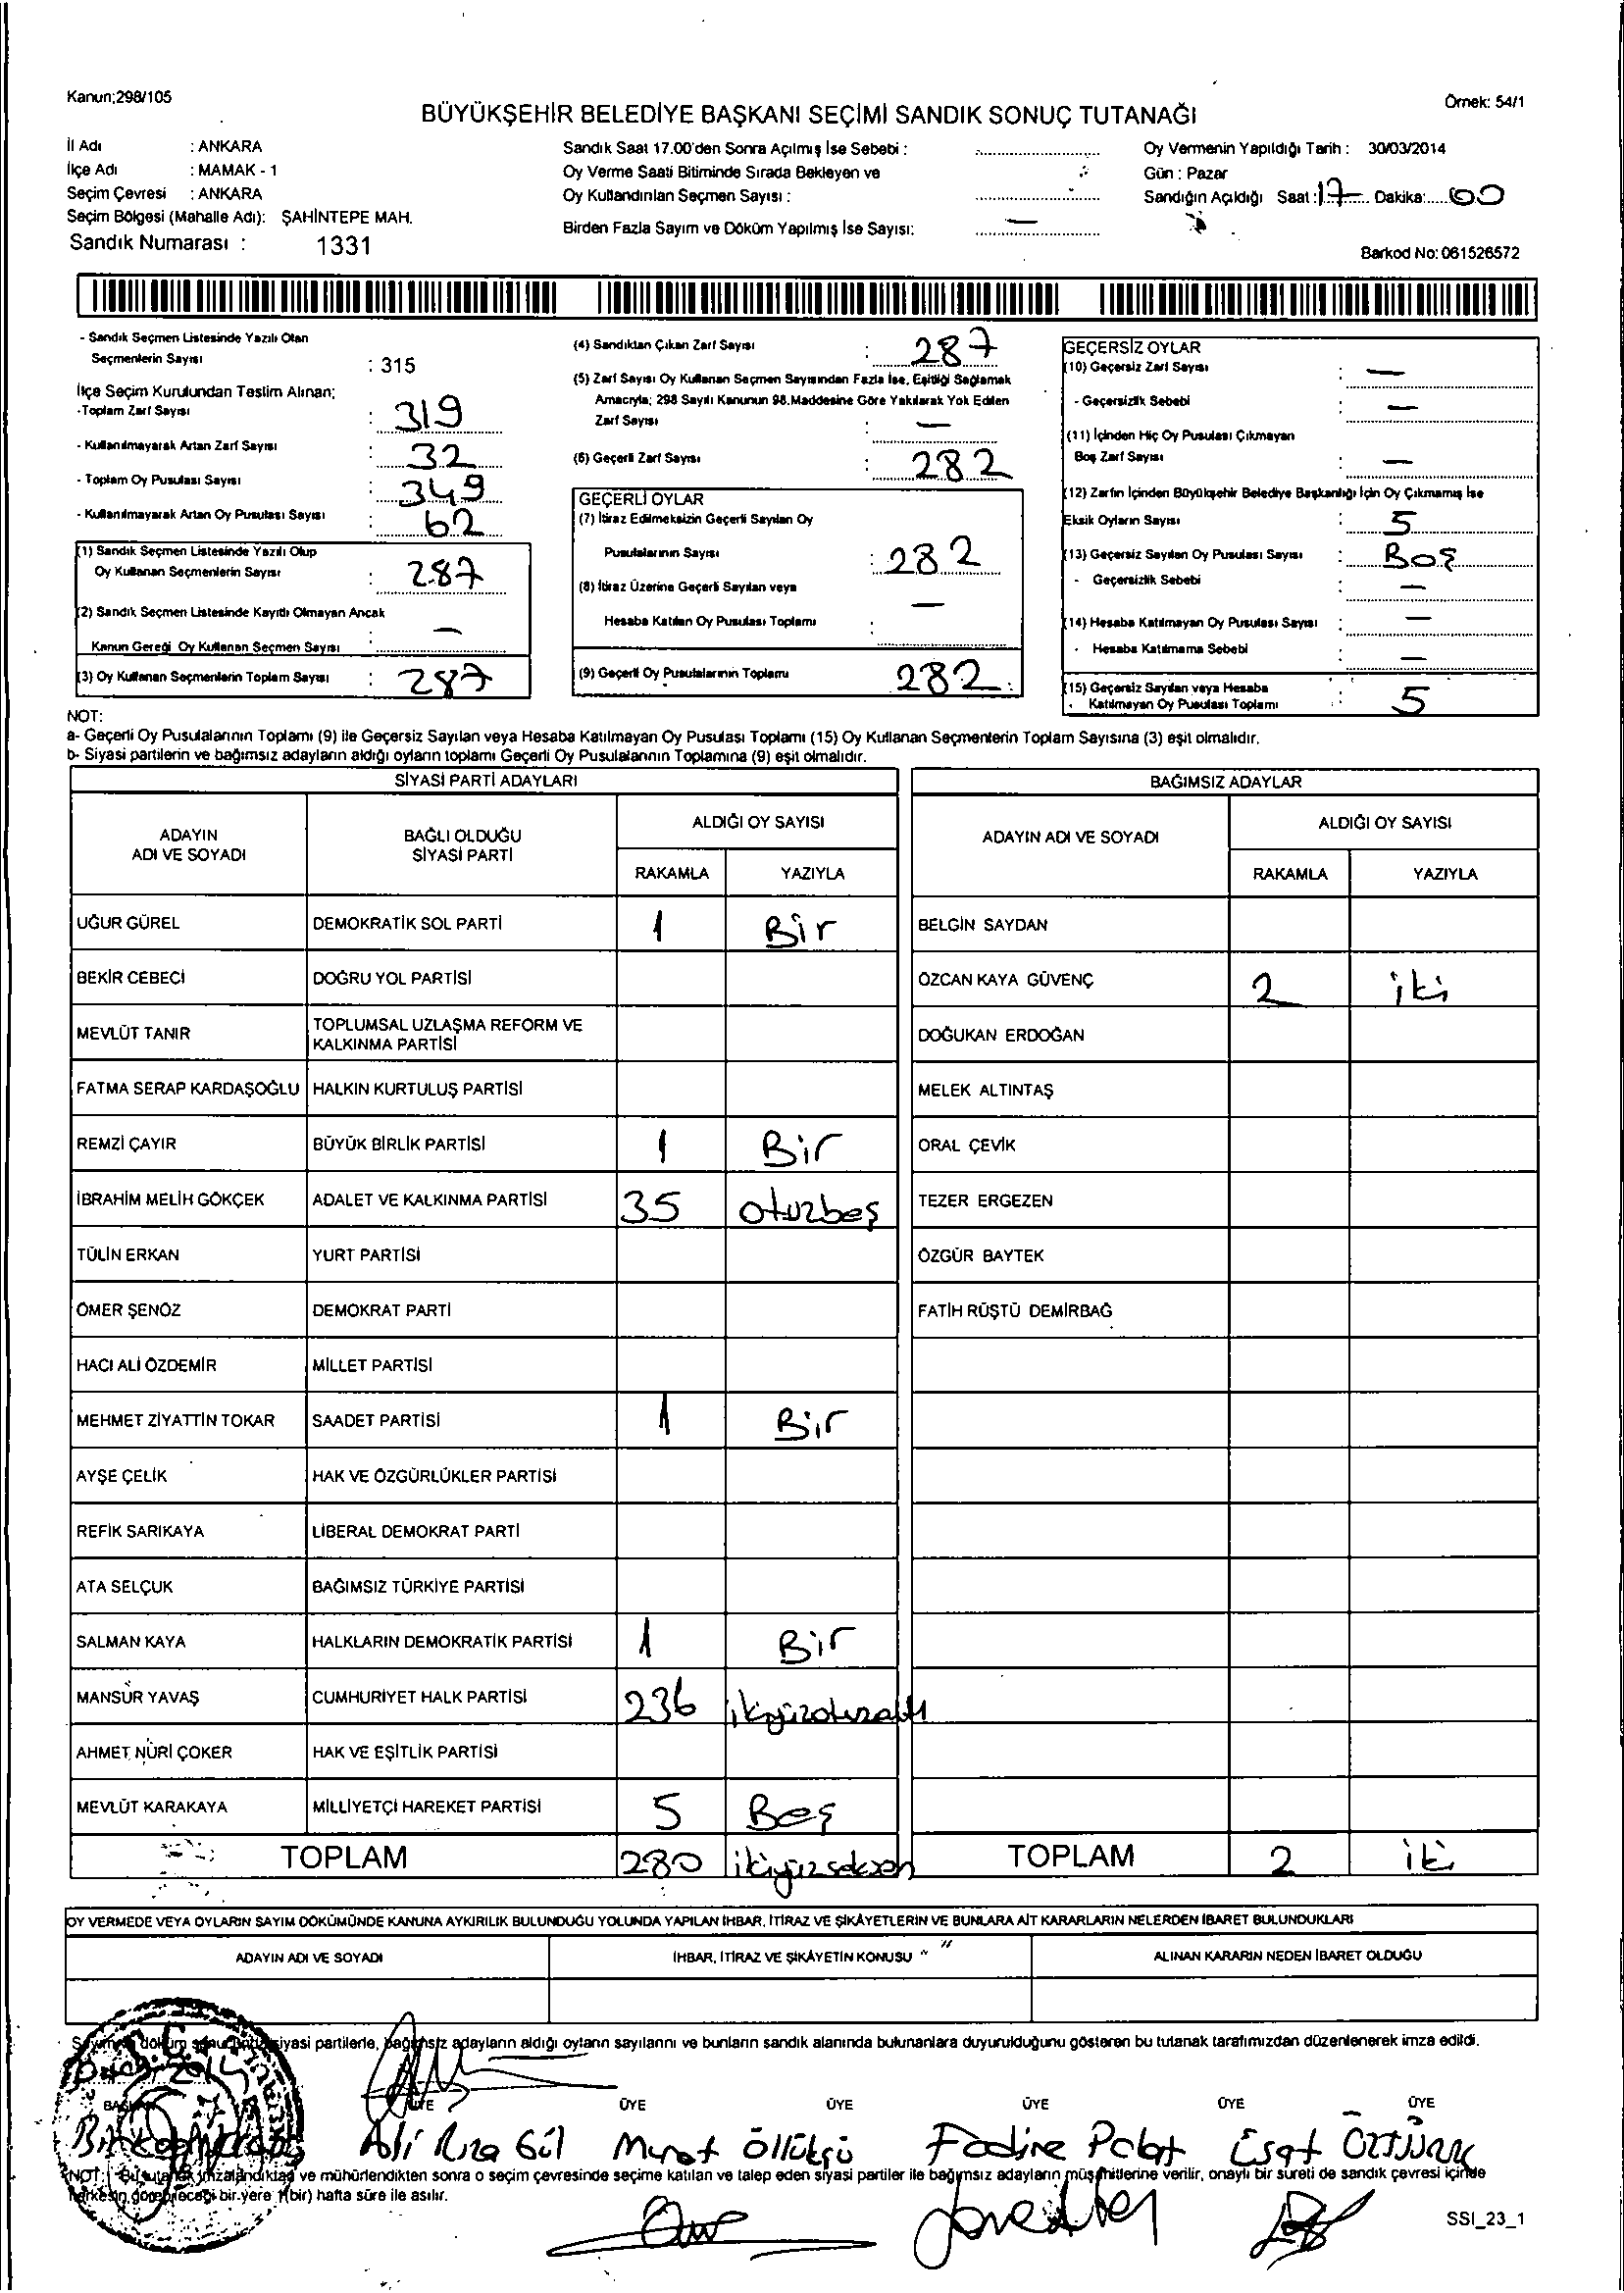 Kanun;298/105
Örnek: 54/1
BÜYÜKŞEHİR BELEDİYE BAŞKANI SEÇİMİ SANDIK SONUÇ TUTANAĞI
İl Adı : ANKARA
İlçe Adı : MAMAK - 1
Seçim Çevresi : ANKARA
Seçim Bölgesi (Mahalle Adı): ŞAHİNTEPE MAH.
Sandık Numarası : 1331
Sandık Saat 17.00'den Sonra Açılmış İse Sebebi :
Oy Verme Saati Bitiminde Sırada Bekleyen ve
Oy Kullandırılan Seçmen Sayısı :
Birden Fazla Sayım ve Döküm Yapılmış İse Sayısı: —
Oy Vermenin Yapıldığı Tarih : 30/03/2014
Gün : Pazar
Sandığın Açıldığı Saat : 17 Dakika: 00
Barkod No: 061526572
- Sandık Seçmen Listesinde Yazılı Olan
Seçmenlerin Sayısı : 315
İlçe Seçim Kurulundan Teslim Alınan;
-Toplam Zarf Sayısı : 319
- Kullanılmayarak Artan Zarf Sayısı : 32
- Toplam Oy Pusulası Sayısı : 349
- Kullanılmayarak Artan Oy Pusulası Sayısı : 62
(1) Sandık Seçmen Listesinde Yazılı Olup
Oy Kullanan Seçmenlerin Sayısı : 287
(2) Sandık Seçmen Listesinde Kayıtlı Olmayan Ancak
Kanun Gereği Oy Kullanan Seçmen Sayısı : —
(3) Oy Kullanan Seçmenlerin Toplam Sayısı : 287
(4) Sandıktan Çıkan Zarf Sayısı : 287
(5) Zarf Sayısı Oy Kullanan Seçmen Sayısından Fazla İse, Eşitliği Sağlamak
Amacıyla; 298 Sayılı Kanunun 98.Maddesine Göre Yakılarak Yok Edilen
Zarf Sayısı : —
(6) Geçerli Zarf Sayısı : 282
GEÇERLİ OYLAR
(7) İtiraz Edilmeksizin Geçerli Sayılan Oy
Pusulalarının Sayısı : 282
(8) İtiraz Üzerine Geçerli Sayılan veya
Hesaba Katılan Oy Pusulası Toplamı : —
(9) Geçerli Oy Pusulalarının Toplamı 282
GEÇERSİZ OYLAR
(10) Geçersiz Zarf Sayısı : —
- Geçersizlik Sebebi : —
(11) İçinden Hiç Oy Pusulası Çıkmayan
Boş Zarf Sayısı : —
(12) Zarfın İçinden Büyükşehir Belediye Başkanlığı İçin Oy Çıkmamış İse
Eksik Oyların Sayısı : 5
(13) Geçersiz Sayılan Oy Pusulası Sayısı : Boş
- Geçersizlik Sebebi : —
(14) Hesaba Katılmayan Oy Pusulası Sayısı : —
- Hesaba Katılmama Sebebi : —
(15) Geçersiz Sayılan veya Hesaba
Katılmayan Oy Pusulası Toplamı : 5
NOT:
a- Geçerli Oy Pusulalarının Toplamı (9) ile Geçersiz Sayılan veya Hesaba Katılmayan Oy Pusulası Toplamı (15) Oy Kullanan Seçmenlerin Toplam Sayısına (3) eşit olmalıdır.
b- Siyasi partilerin ve bağımsız adayların aldığı oyların toplamı Geçerli Oy Pusulalarının Toplamına (9) eşit olmalıdır.
SİYASİ PARTİ ADAYLARI
ADAYIN ADI VE SOYADI BAĞLI OLDUĞU SİYASİ PARTİ ALDIĞI OY SAYISI
RAKAMLA YAZIYLA
UĞUR GÜREL DEMOKRATİK SOL PARTİ 1 Bir
BEKİR CEBECİ DOĞRU YOL PARTİSİ
MEVLÜT TANIR TOPLUMSAL UZLAŞMA REFORM VE KALKINMA PARTİSİ
FATMA SERAP KARDAŞOĞLU HALKIN KURTULUŞ PARTİSİ
REMZİ ÇAYIR BÜYÜK BİRLİK PARTİSİ 1 Bir
İBRAHİM MELİH GÖKÇEK ADALET VE KALKINMA PARTİSİ 35 otuzbeş
TÜLİN ERKAN YURT PARTİSİ
ÖMER ŞENÖZ DEMOKRAT PARTİ
HACI ALİ ÖZDEMİR MİLLET PARTİSİ
MEHMET ZİYATTİN TOKAR SAADET PARTİSİ 1 Bir
AYŞE ÇELİK HAK VE ÖZGÜRLÜKLER PARTİSİ
REFİK SARIKAYA LİBERAL DEMOKRAT PARTİ
ATA SELÇUK BAĞIMSIZ TÜRKİYE PARTİSİ
SALMAN KAYA HALKLARIN DEMOKRATİK PARTİSİ 1 Bir
MANSUR YAVAŞ CUMHURİYET HALK PARTİSİ 236 ikiyüzotuzaltı
AHMET NURİ ÇOKER HAK VE EŞİTLİK PARTİSİ
MEVLÜT KARAKAYA MİLLİYETÇİ HAREKET PARTİSİ 5 Beş
TOPLAM 280 ikiyüzseksen
BAĞIMSIZ ADAYLAR
ADAYIN ADI VE SOYADI ALDIĞI OY SAYISI
RAKAMLA YAZIYLA
BELGİN SAYDAN
ÖZCAN KAYA GÜVENÇ 2 iki
DOĞUKAN ERDOĞAN
MELEK ALTINTAŞ
ORAL ÇEVİK
TEZER ERGEZEN
ÖZGÜR BAYTEK
FATİH RÜŞTÜ DEMİRBAĞ
TOPLAM 2 iki
OY VERMEDE VEYA OYLARIN SAYIM DÖKÜMÜNDE KANUNA AYKIRILIK BULUNDUĞU YOLUNDA YAPILAN İHBAR, İTİRAZ VE ŞİKÂYETLERİN VE BUNLARA AİT KARARLARIN NELERDEN İBARET BULUNDUKLARI
ADAYIN ADI VE SOYADI İHBAR, İTİRAZ VE ŞİKÂYETİN KONUSU ALINAN KARARIN NEDEN İBARET OLDUĞU
döküm siyasi partilerle, bağımsız adayların aldığı oyların sayılarını ve bunların sandık alanında bulunanlara duyurulduğunu gösteren bu tutanak tarafımızdan düzenlenerek imza edildi.
ÜYE ÜYE ÜYE ÜYE ÜYE ÜYE
Ali Rıza Gül Murat Fadime Polat Esat ÖZTÜRK
NOT : Bu tutanak imzalandıktan ve mühürlendikten sonra o seçim çevresinde seçime katılan ve talep eden siyasi partiler ile bağımsız adayların müşahitlerine verilir, onaylı bir sureti de sandık çevresi içinde
herkesin görebileceği bir yere 1(bir) hafta süre ile asılır.
SSI_23_1